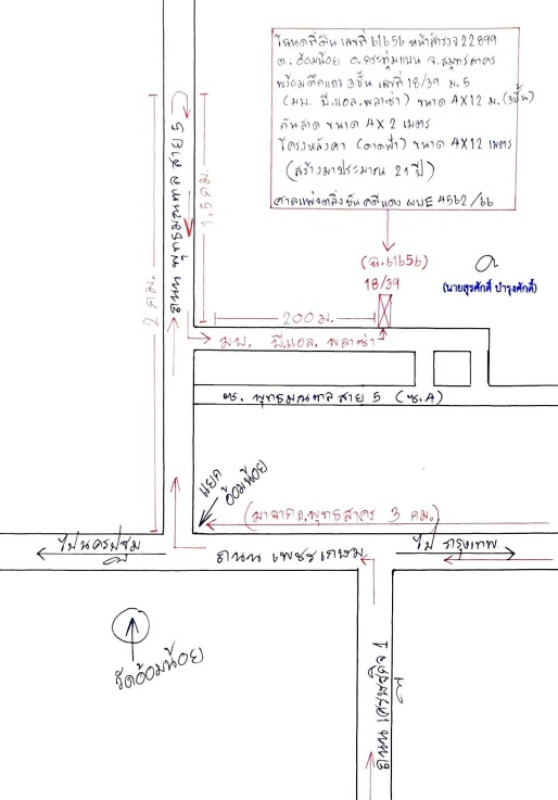 โฉนดที่ดิน เลขที่ 61656 หน้าสำรวจ 22899
ต. อ้อมน้อย อ.กระทุ่มแบน จ.สมุทรสาคร
พร้อมตึกแถว 3 ชั้น เลขที่ 18/39 ม. 5
(มบ. บี.แอล.พลาซ่า) ขนาด 4X12 ม. (3ชั้น)
กันสาด ขนาด 4X2 เมตร
โครงหลังคา (ดาดฟ้า) ขนาด 4X12 เมตร
(สร้างมาประมาณ 21 ปี)
ศาลแพ่งตลิ่งชัน คดีแดง ผบE 4562/66
(ฉ.61656)
18/39
(นายสุรศักดิ์ บำรุงศักดิ์)
ถนน พุทธมณฑล สาย 5
1.5 กม.
2 กม.
200 ม.
มบ. บี.แอล. พลาซ่า
ซ. พุทธมณฑลสาย 5 (ซ.A)
แยก
อ้อมน้อย
(มาจาก ถ.พุทธสาคร 3 กม.)
ไปนครปฐม
ถนน เพชรเกษม
ไป กรุงเทพ
วัดอ้อมน้อย
ถนน เศรษฐกิจ 1